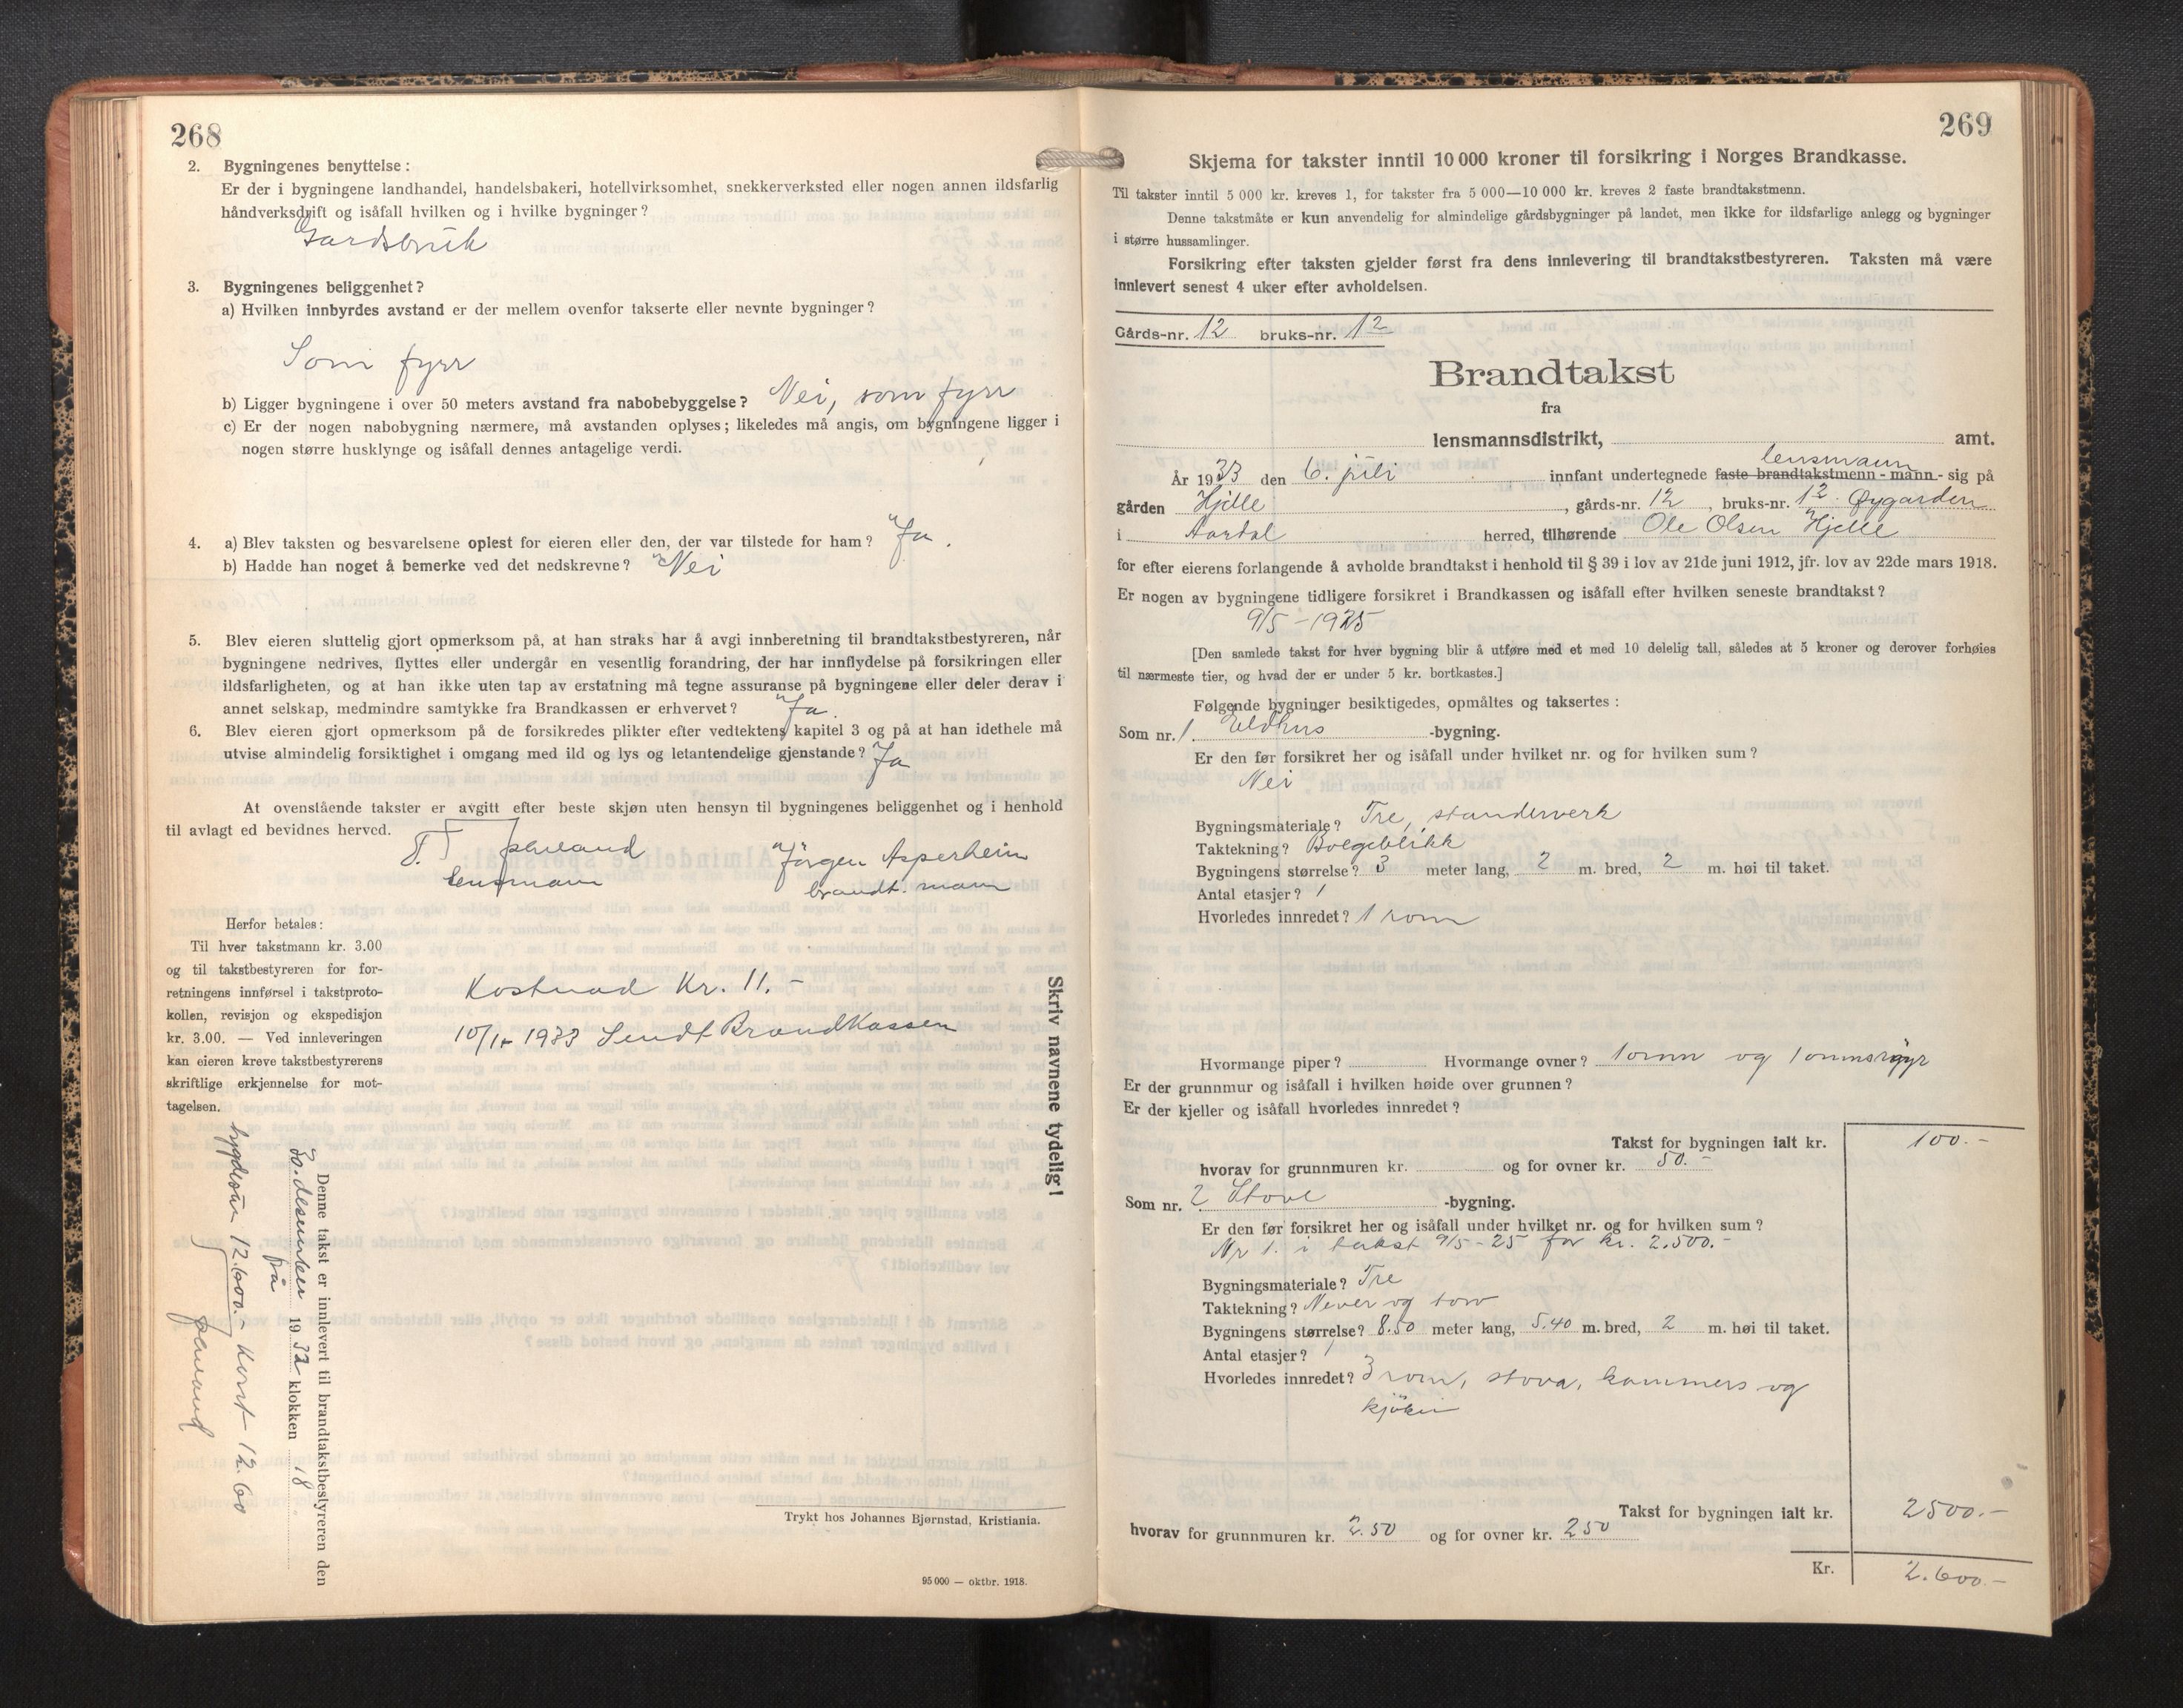 268
2. Bygningenes benyttelse:
Er der i bygningene landhandel, handelsbakeri, hotellvirksomhet, snekkerverksted eller nogen annen ildsfarlig
håndverksdrift og isåfall hvilken og i hvilke bygninger?
Gardsbruk
3. Bygningenes beliggenhet?
a) Hvilken innbyrdes avstand er der mellem ovenfor takserte eller nevnte bygninger?
Som fyrr
b) Ligger bygningene i over 50 meters avstand fra nabobebyggelse? Nei, som fyrr
c) Er der nogen nabobygning nærmere, må avstanden oplyses; likeledes må angis, om bygningene ligger i
nogen større husklynge og isåfall dennes antagelige verdi.
4. a) Blev taksten og besvarelsene oplest for eieren eller den, der var tilstede for ham? Ja.
b) Hadde han noget å bemerke ved det nedskrevne? Nei
5. Blev eieren sluttelig gjort opmerksom på, at han straks har å avgi innberetning til brandtakstbestyreren, når
bygningene nedrives, flyttes eller undergår en vesentlig forandring, der har innflydelse på forsikringen eller
ildsfarligheten, og at han ikke uten tap av erstatning må tegne assuranse på bygningene eller deler derav i
annet selskap, medmindre samtykke fra Brandkassen er erhvervet? Ja.
6. Blev eieren gjort opmerksom på de forsikredes plikter efter vedtektens kapitel 3 og på at han idethele må
utvise almindelig forsiktighet i omgang med ild og lys og letantendelige gjenstande? Ja
At ovenstående takster er avgitt efter beste skjøn uten hensyn til bygningenes beliggenhet og i henhold
til avlagt ed bevidnes herved.
lensmann
Jörgen Asperheim
brandt. mann
Herfor betales:
Til hver takstmann kr. 3.00
og til takstbestyreren for for-
retningens innførsel i takstproto-
kollen, revisjon og ekspedisjon
kr. 3.00. — Ved innleveringen
kan eieren kreve takstbestyrerens
skriftlige erkjennelse for mot-
tagelsen.
Kostnad Kr. 11.-
1933 Sendt Brandkassen
Skriv navnene tydelig!
Denne takst er innlevert til brandtakstbestyreren den
30. desember 1932 klokken 18
på
12.600.- Kont 12.60
Trykt hos Johannes Bjørnstad, Kristiania.
95 000 — oktbr. 1918.
269
Skjema for takster inntil 10 000 kroner til forsikring i Norges Brandkasse.
Til takster inntil 5 000 kr. kreves 1, for takster fra 5 000—10 000 kr. kreves 2 faste brandtakstmenn.
Denne takstmåte er kun anvendelig for almindelige gårdsbygninger på landet, men ikke for ildsfarlige anlegg og bygninger
i større hussamlinger.
Forsikring efter taksten gjelder først fra dens innlevering til brandtakstbestyreren. Taksten må være
innlevert senest 4 uker efter avholdelsen.
Gårds-nr. 12 bruks-nr. 12
Brandtakst
fra
lensmannsdistrikt, amt.
lensmann
År 1933 den 6. juli innfant undertegnede faste brandtakstmenn - mann - sig på
gården Hjelle, gårds-nr. 12, bruks-nr. 12. Øygarden
i Aardal herred, tilhørende Ole Olsen Hjelle
for efter eierens forlangende å avholde brandtakst i henhold til § 39 i lov av 21de juni 1912, jfr. lov av 22de mars 1918.
Er nogen av bygningene tidligere forsikret i Brandkassen og isåfall efter hvilken seneste brandtakst?
9/5 - 1925
[Den samlede takst for hver bygning blir å utføre med et med 10 delelig tall, således at 5 kroner og derover forhøies
til nærmeste tier, og hvad der er under 5 kr. bortkastes.]
Følgende bygninger besiktigedes, opmåltes og taksertes:
Som nr. 1. Eldhus -bygning.
Er den før forsikret her og isåfall under hvilket nr. og for hvilken sum?
Nei
Bygningsmateriale? Tre, standerverk
Taktekning? Bølgeblikk
Bygningens størrelse? 3 meter lang, 2 m. bred, 2 m. høi til taket.
Antal etasjer? 1
Hvorledes innredet? 1 rom
Hvormange piper? Hvormange ovner? 1 omn og 1 omnsröyr
Er der grunnmur og isåfall i hvilken høide over grunnen?
Er der kjeller og isåfall hvorledes innredet?
Takst for bygningen ialt kr. 100.-
hvorav for grunnmuren kr. og for ovner kr. 50.-
Som nr. 2 Stove -bygning.
Er den før forsikret her og isåfall under hvilket nr. og for hvilken sum?
Nr 1. i takst 9/5-25 for kr. 2.500.-
Bygningsmateriale? Tre
Taktekning? Never og torv
Bygningens størrelse? 8.50 meter lang, 5.40 m. bred, 2 m. høi til taket.
Antal etasjer? 1
Hvorledes innredet? 3 rom, stova, kammers og
kjöken
Takst for bygningen ialt kr. 2500.-
hvorav for grunnmuren kr. 2.50 og for ovner kr. 250
Kr. 2.600.-